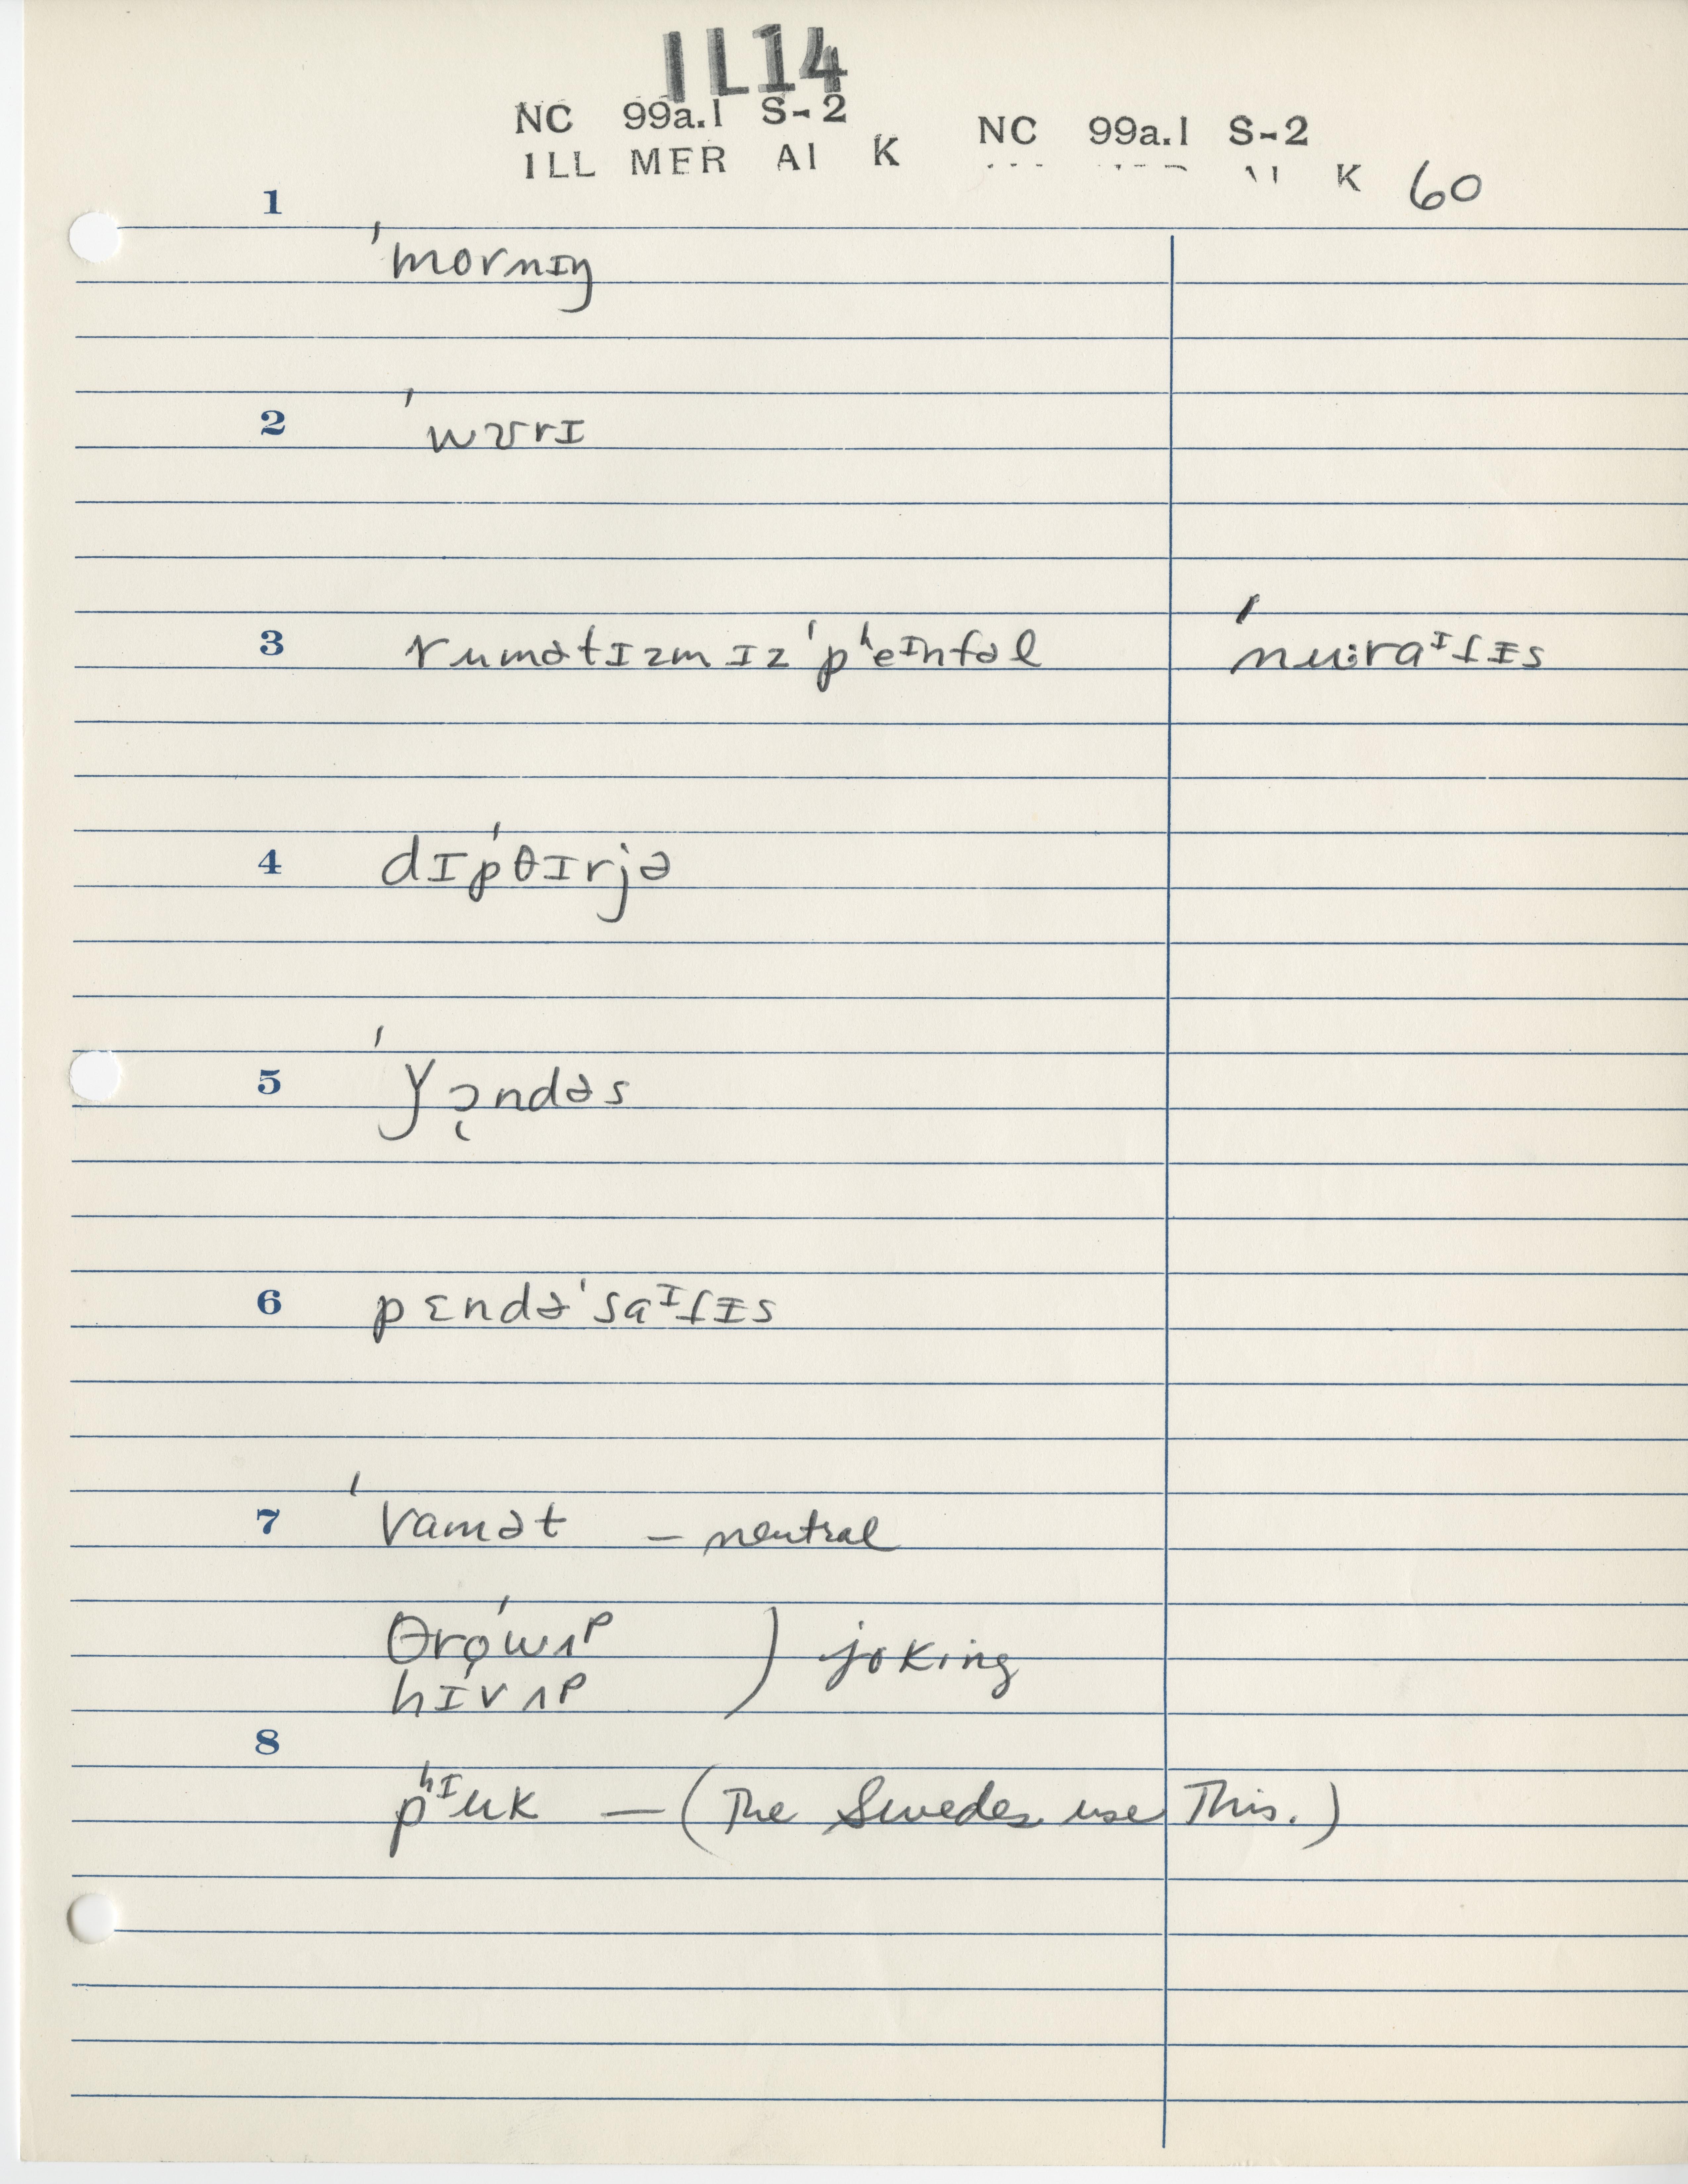 1L14
NC 99a.1 S-2 NC 99a.1 S-2
ILL MER A1 K K 60
1 ˈmornɪŋ
2 ˈwʊrɪ
3 rumətɪzm ɪz ˈpʰeɪnfəl ˈnu:raᴵtɪs
4 dɪpˈθɪrjə
5 ˈjɔndəs
6 pɛndəˈsaᴵtɪs
7 ˈvamət – neutral
θroˈwʌp ) joking
hɪvʌp
8
pʰᴵuk — (The Swedes use This.)